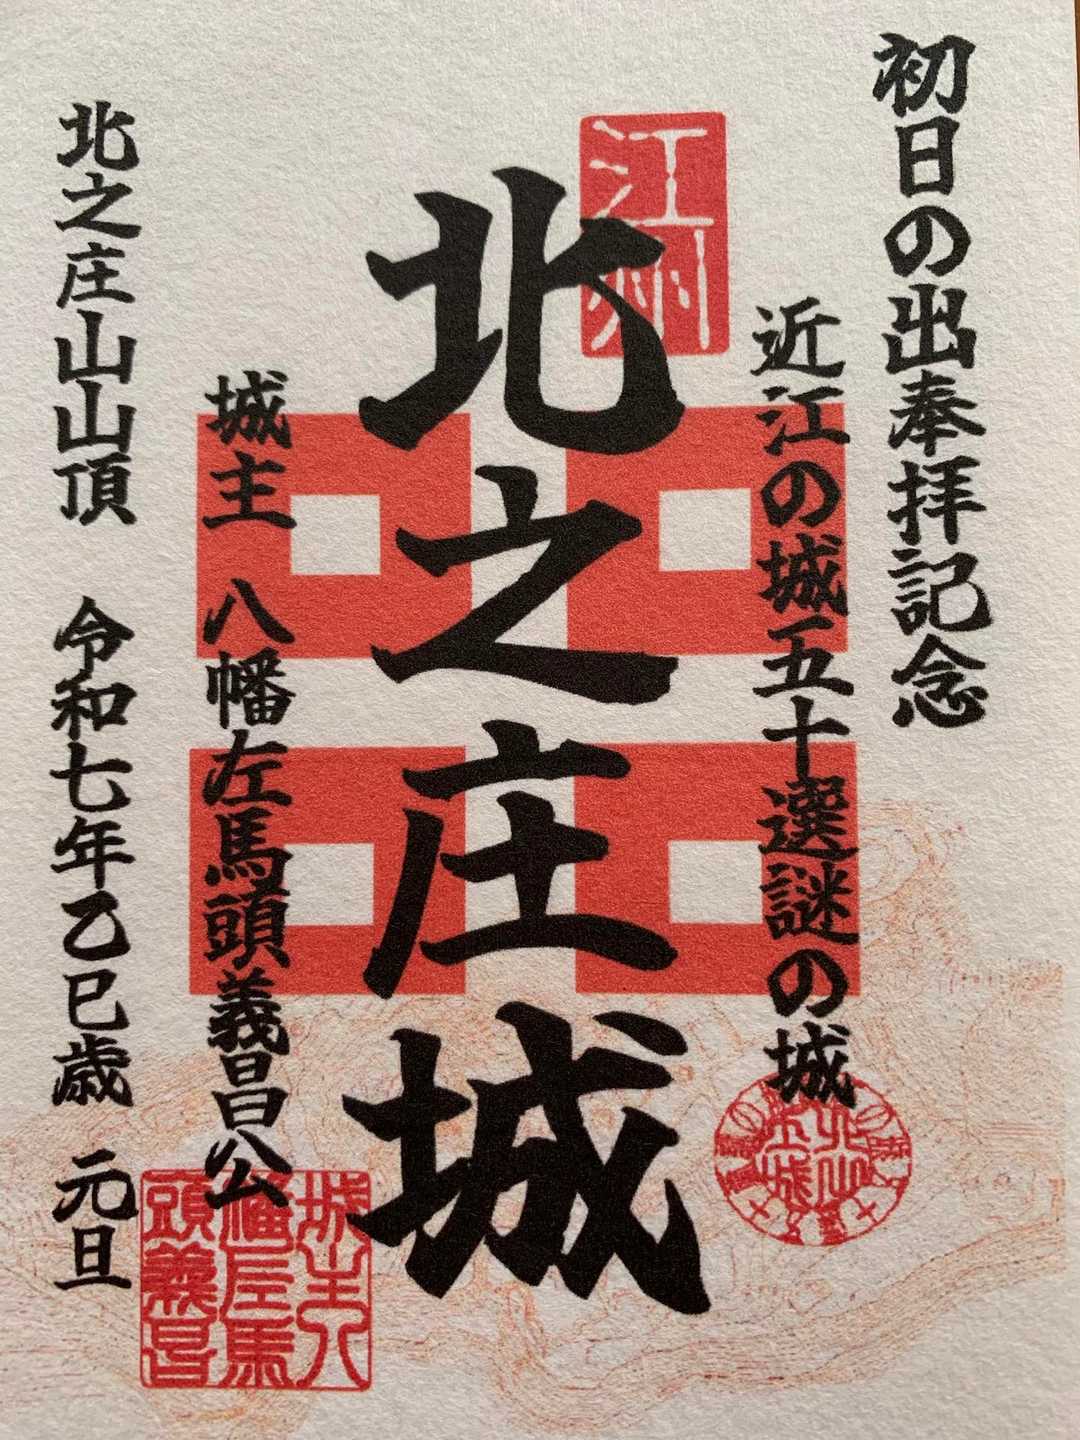 初日の出奉拝記念
近江の城五十選謎の城
江州
北之庄城
城主 八幡左馬頭義昌公
城主八幡左馬頭義昌
北之庄山山頂 令和七年乙巳歳 元旦